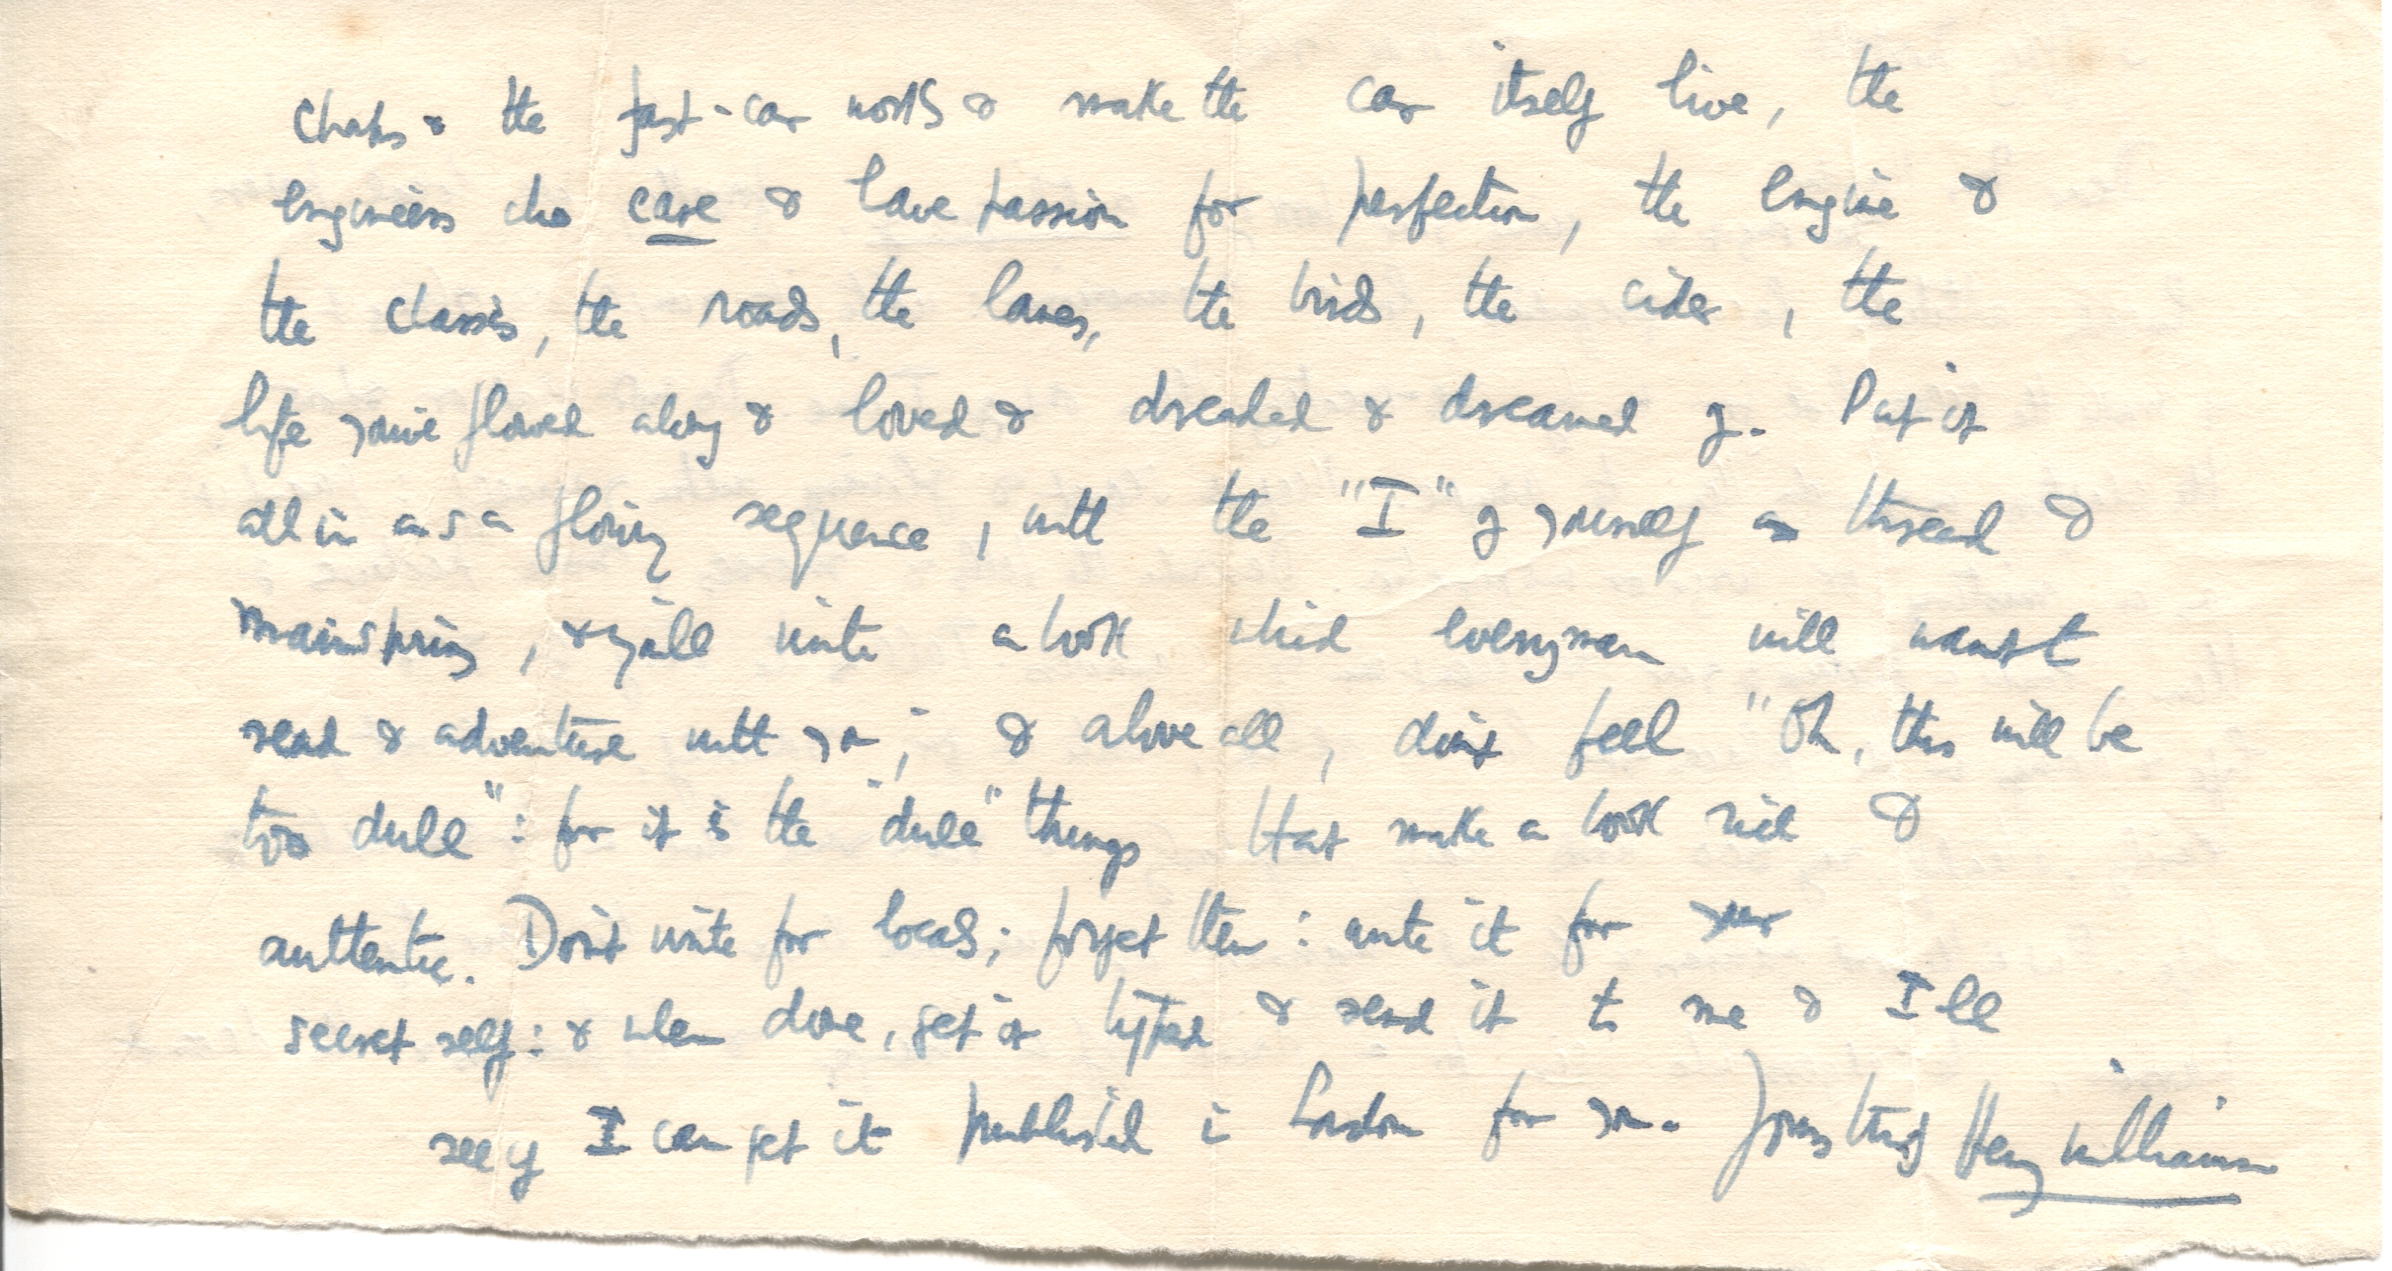 & the fast-car works & make the car itself live, the
engineers who care & have passion for perfection, the engine &
the chassis, the roads, the lanes, the birds, the cider, the
life you've flowed along & loved & dreaded & dreamed of. Put it
all in as a flowing sequence, with the "I" of yourself as thread &
mainspring, & you'll write a book which everyman will want to
read & adventure with you; & above all, don't feel "Oh, this will be
too dull": for it is the "dull" things that make a book rich &
authentic. Don't write for locals; forget them: write it for your
secret self: & when done, get it typed & send it to me & I'll
see if I can get it published in London for you. Yours Henry Williamson